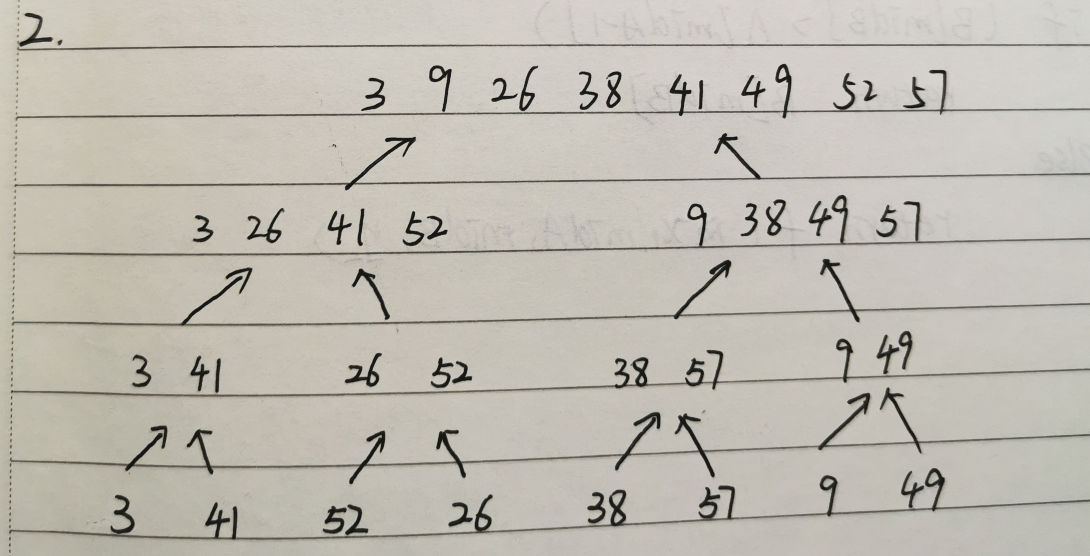 2.
3 9 26 38 41 49 52 57
3 26 41 52 9 38 49 57
3 41 26 52 38 57 9 49
3 41 52 26 38 57 9 49